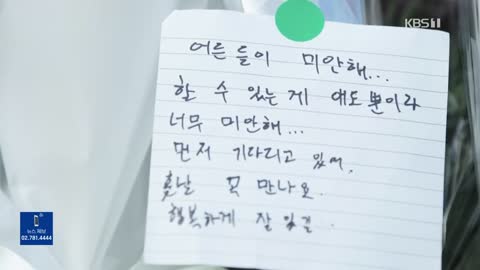 KBS1
어른들이 미안해...
할 수 있는 게 애도뿐이라
너무 미안해...
먼저 기다리고 있어,
훗날 꼭 만나요
행복하게 잘 있길.
뉴스 제보
02.781.4444